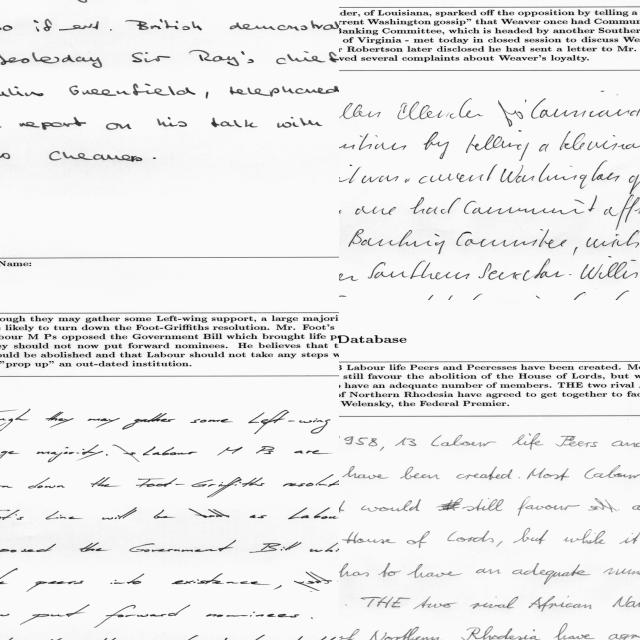 so if ever. British demonstrat
Yesterday Sir Ray's chief
Greenfield, telephoned
report on his talk with
cheaners.
Name:
ough they may gather some Left-wing support, a large majori
likely to turn down the Foot-Griffiths resolution. Mr. Foot's
bour M Ps opposed the Government Bill which brought life p
ey should not now put forward nominees. He believes that t
ould be abolished and that Labour should not take any steps w
"prop up" an out-dated institution.
ugh they may gather some Left-wing
ge majority. Labour M Ps are
rn down the Foot-Griffiths resolut
ot's line will be as Labou
posed the Government Bill whi
peers into existence,
w put forward nominees.
der, of Louisiana, sparked off the opposition by telling a
rrent Washington gossip" that Weaver once had Commu
Banking Committee, which is headed by another Souther
of Virginia - met today in closed session to discuss We
Robertson later disclosed he had sent a letter to Mr.
ved several complaints about Weaver's loyalty.
llen Ellender of Louisiana
sitions by telling a televisio
it was. current Washington g
one had Communist aff
Banking Committee, which
er Southern Senator. Willis
Database
3 Labour life Peers and Peeresses have been created. Mo
still favour the abolition of the House of Lords, but w
have an adequate number of members. THE two rival
of Northern Rhodesia have agreed to get together to fac
Welensky, the Federal Premier.
958, 13 Labour life Peers and
have been created. Most Labour
would still favour a
House of Lords, but while it
has to have an adequate num
THE two rival African Na
of Northern Rhodesia have agr